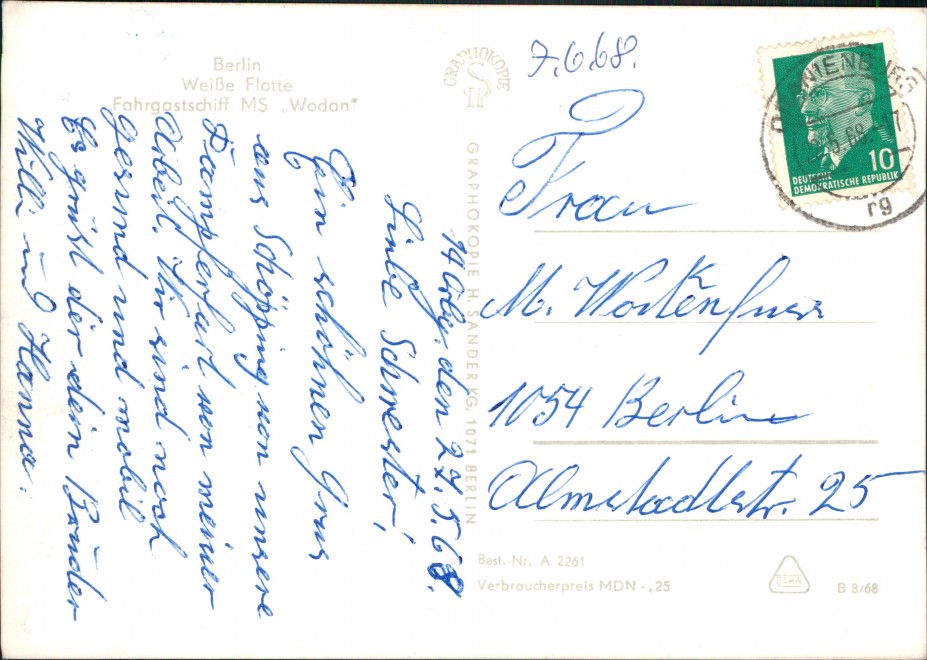 Berlin
Weiße Flotte
Fahrgastschiff MS „Wodan"
GRAPHOKOPIE
H S
7.6.68.
14 Orbg. den 27.5.68.
Liebe Schwester!
Ein schönen Grus
aus Schöpping von unsere
Dampferfart von meiner
Arbeit. Wir sind noch
gesund und mobil
Es grüst der dein Bruder
Willi und Hanna.
GRAPHOKOPIE H. SANDER KG, 1071 BERLIN
10
DEUTSCHE
DEMOKRATISCHE REPUBLIK
rg
Frau
M. Workenfuss
1054 Berlin
Almstadtstr. 25
Best.-Nr. A 2261
Verbraucherpreis MDN -,25
B 8/68